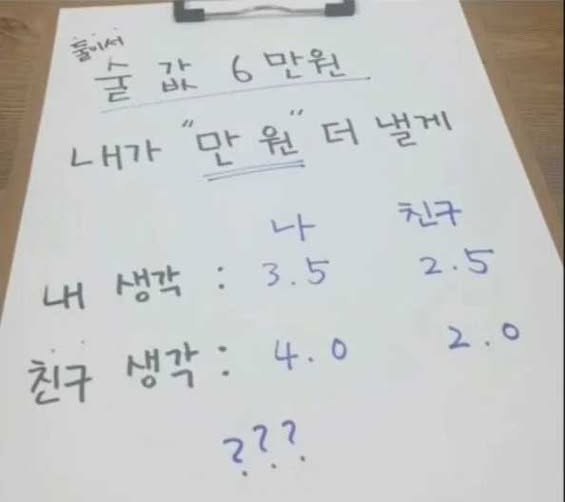 둘이서
술 값 6만원
내가 "만 원" 더 낼게
나 친구
내 생각 : 3.5 2.5
친구 생각 : 4.0 2.0
???